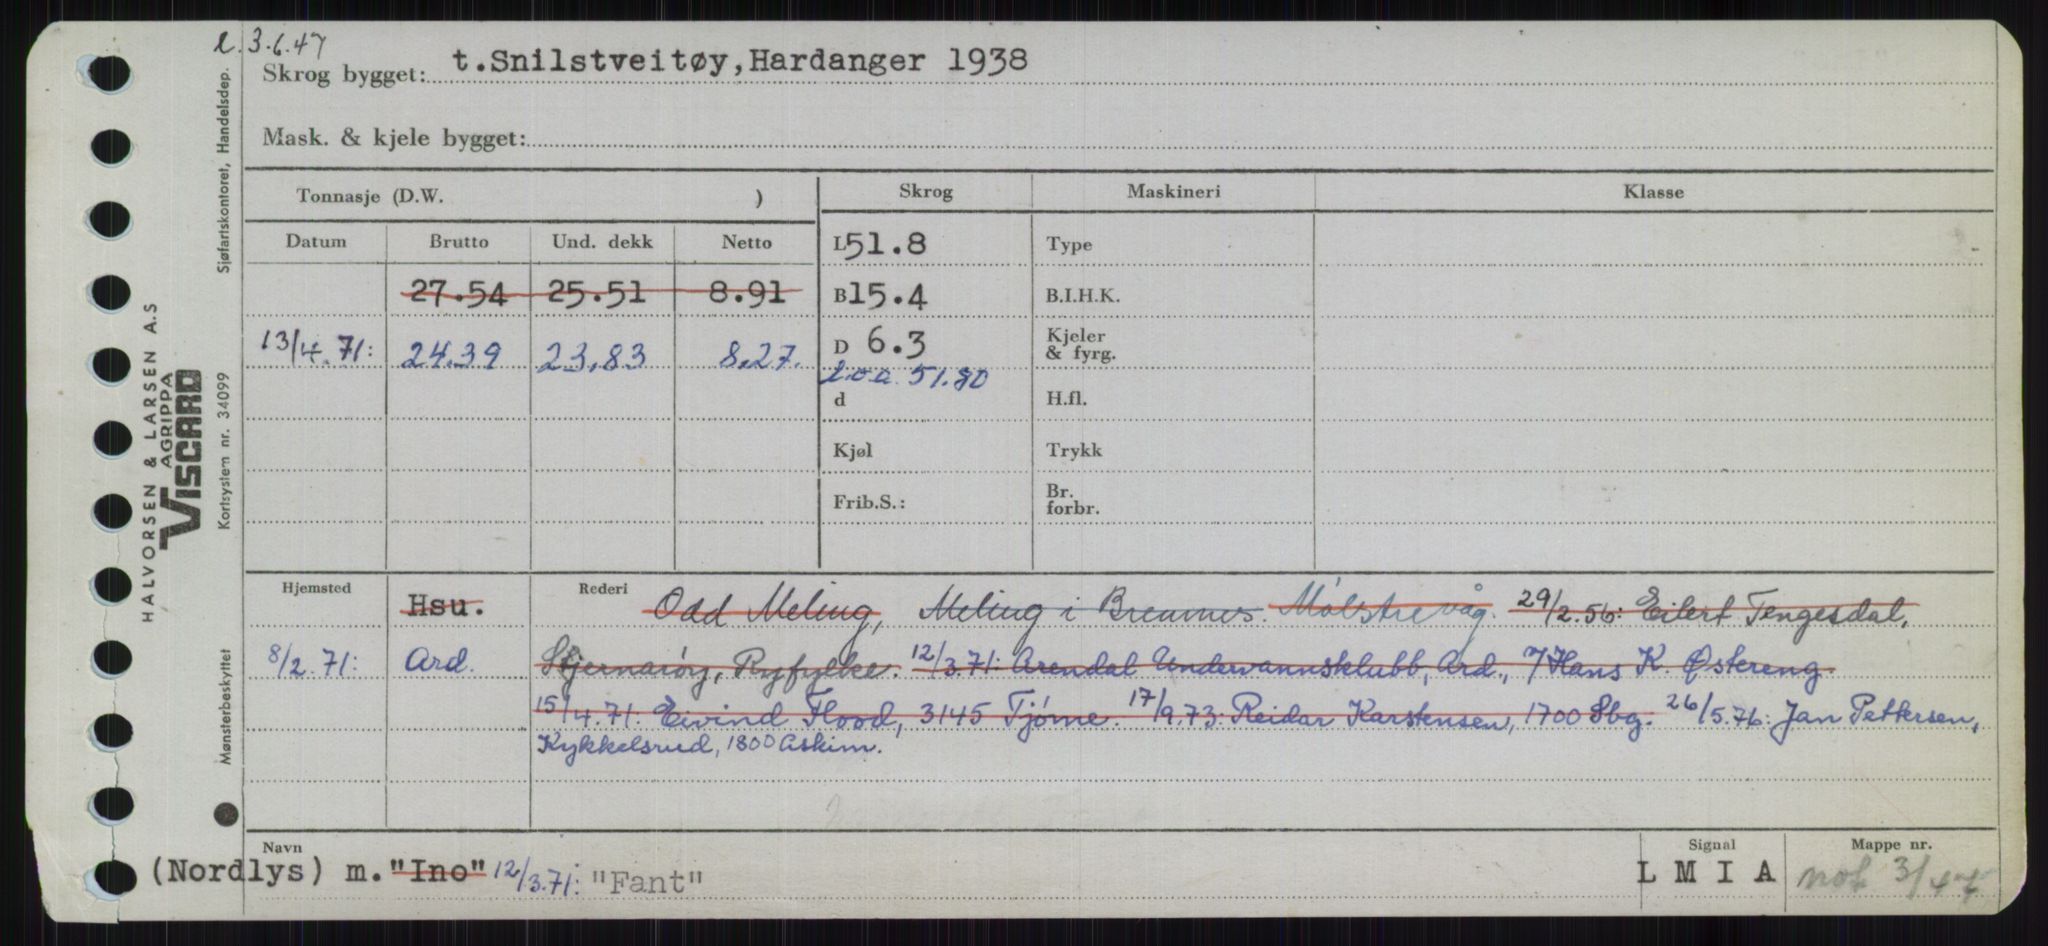 3.6.47
Skrog bygget: t.Snilstveitøy,Hardanger 1938
Mask. & kjele bygget:
Tonnasje (D.W. )
Skrog
Maskineri
Klasse
Datum
Brutto
Und. dekk
Netto
L51.8
Type
27.54 25.51 8.91
B15.4
B.I.H.K.
13/4.71: 24.39 23,83 8,27.
D 6.3
Kjeler
& fyrg.
l.o.a. 51.80
d
H.fl.
Kjøl
Trykk
Frib.S.:
Br.
forbr.
Hjemsted
Hsu.
Rederi
Odd Meling, Meling i Bremnes. 29/2.56: Eilert Tengesdal,
8/2.71: Ard. Stjernarøy, Ryfylke. 12/3.71: Arendal Undervannsklubb, Ard., v/Hans K. Østereng
15/4.71: Eivind Flood, 3145 Tjøme. 17/9.73: Reidar Karstensen, 1700 Sbg. 26/5.76: Jan Pettersen,
Kykkelsrud, 1800 Askim.
Navn
(Nordlys) m. "Ino" 12/3.71: "Fant"
Signal
L M I A
Mappe nr.
not 3/47
Sjøfartskontoret, Handelsdep.
HALVORSEN & LARSEN A.S
AGRIPPA
VISCARD
Kortsystem nr. 34099
Mønsterbeskyttet